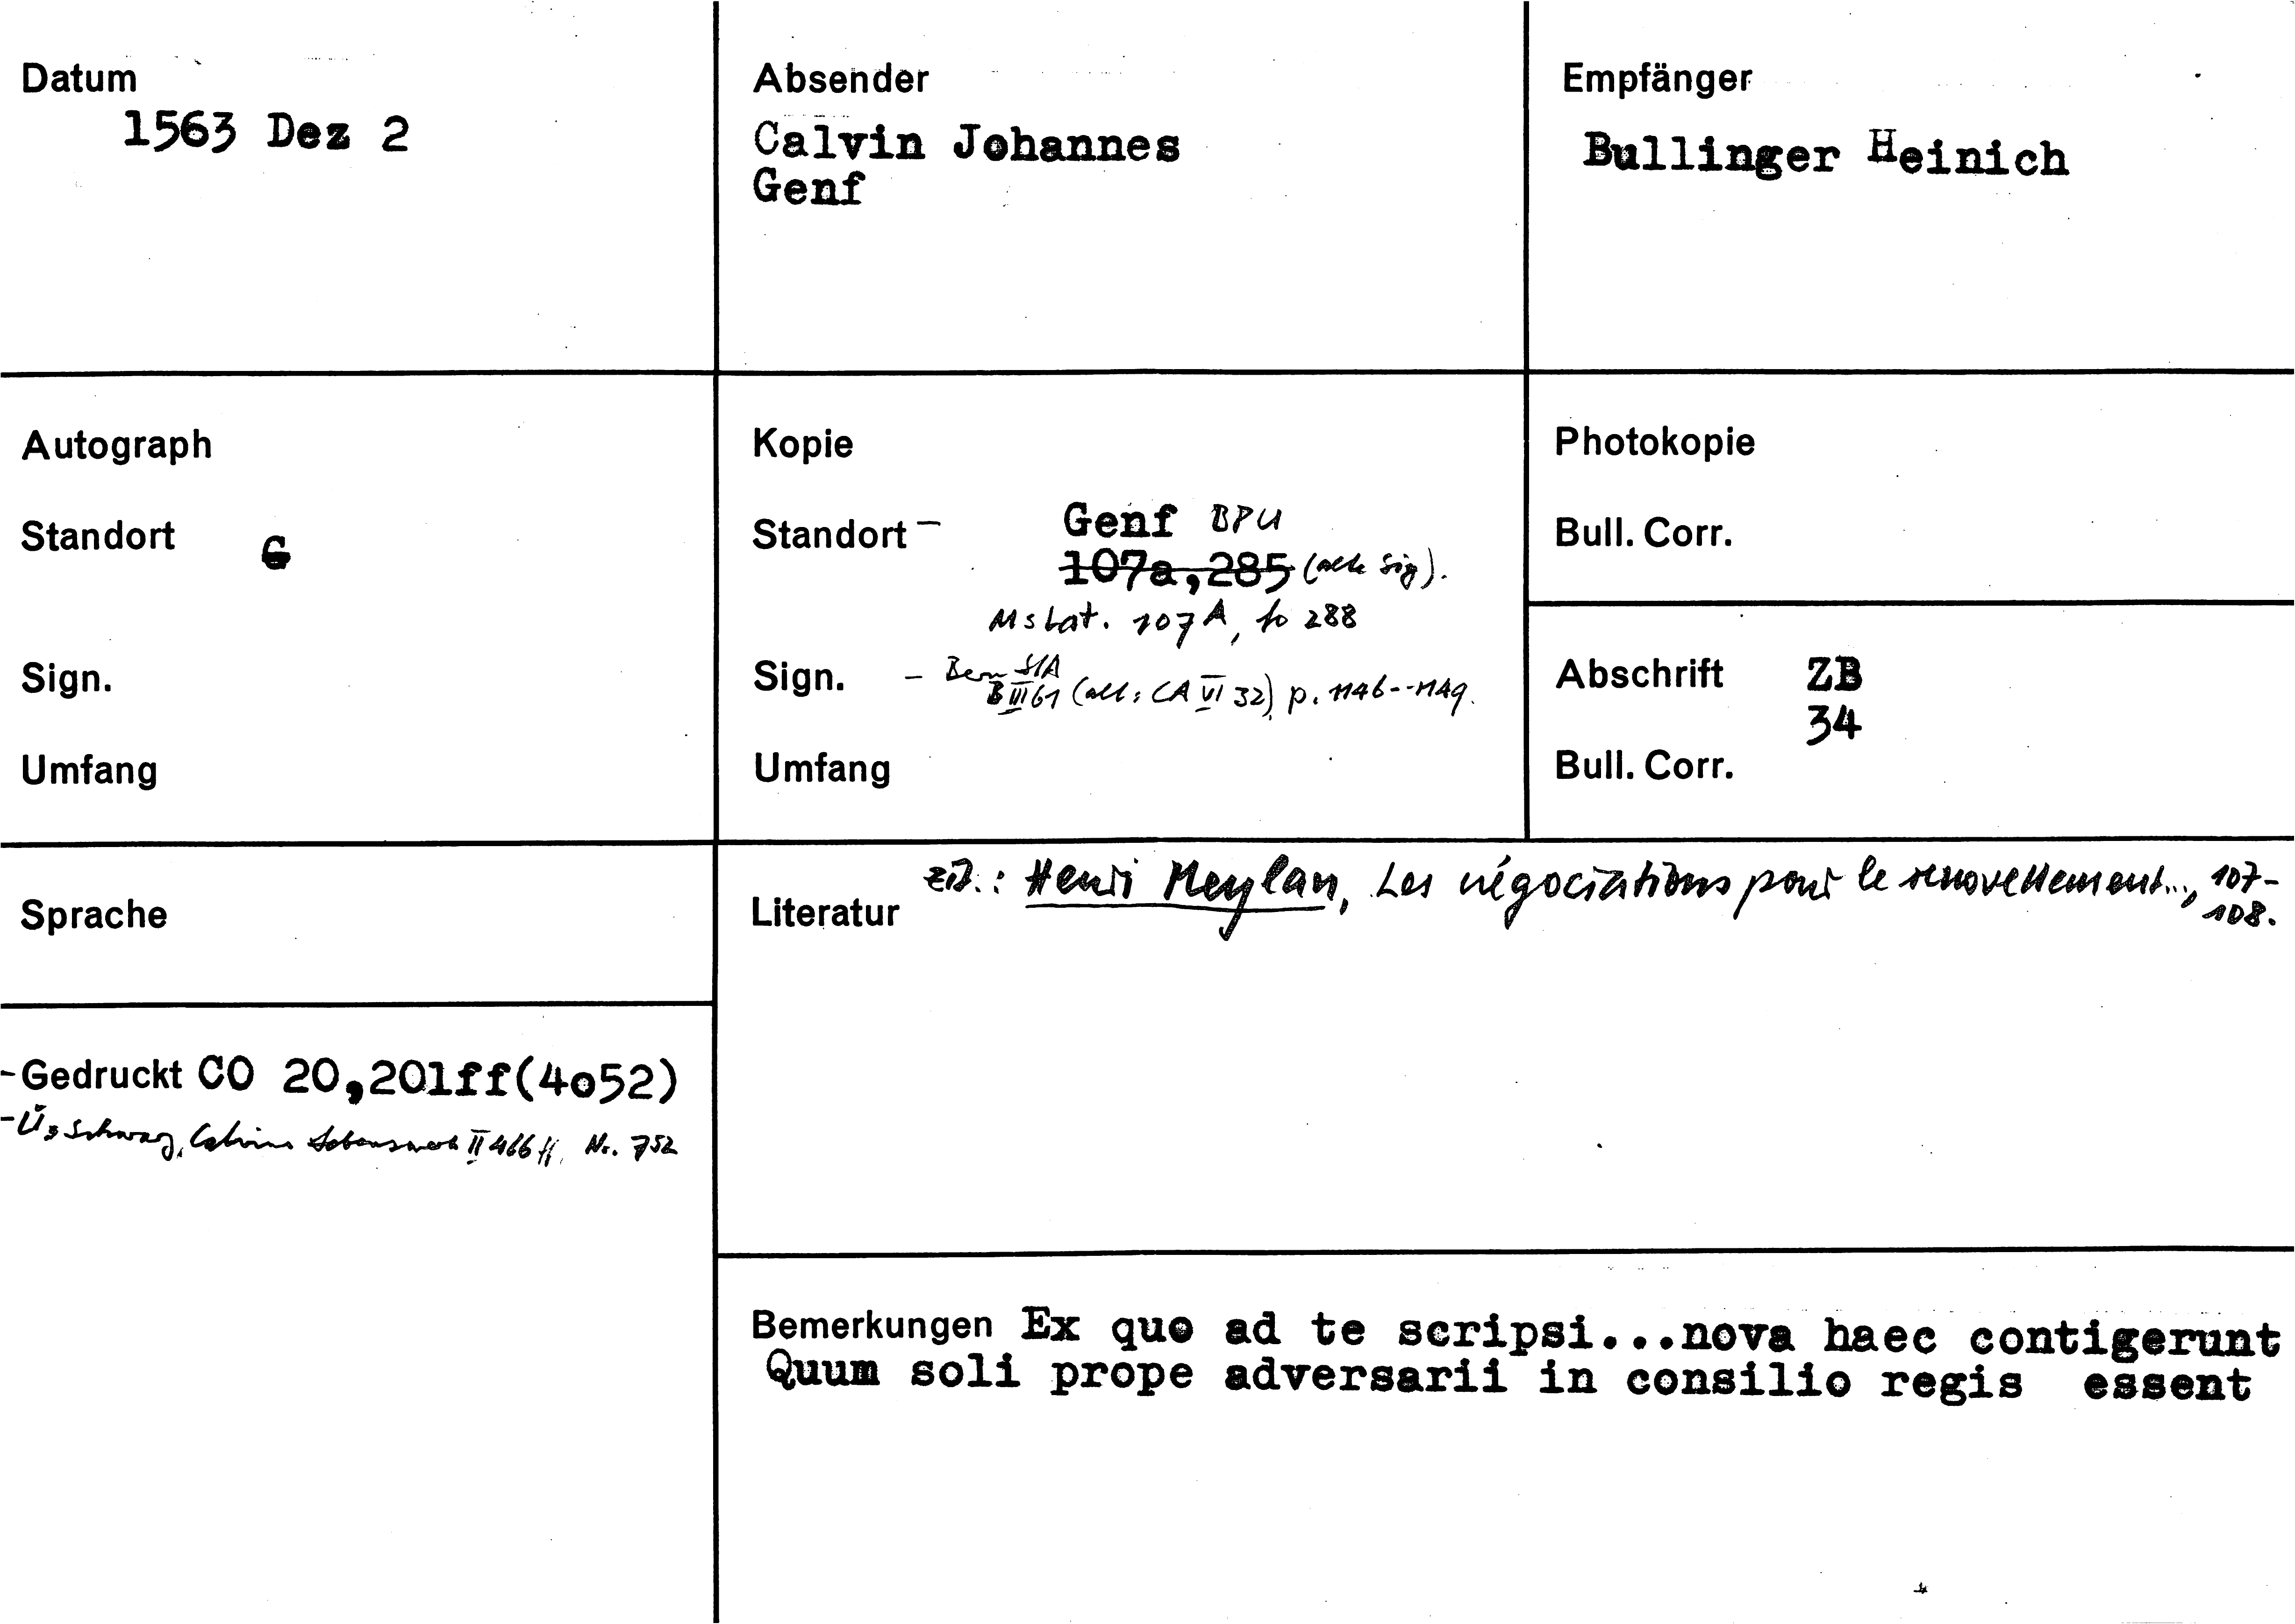 Datum
1563 Dez 2
Absender
Calvin Johannes
Genf
Empfänger
Bullinger Heinich
Autograph
Standort G
Sign.
Umfang
Kopie
Standort - Genf BPU
107a,285 (alte Sig).
Ms Lat. 107 A, fo 288
Sign. - Bern StA
B III 61 (alt: CA VI 32) p. 1146--1149.
Umfang
Photokopie
Bull. Corr.
Abschrift ZB
34
Bull. Corr.
Sprache
Literatur zit.: Henri Meylan, Les négociations pour le renovellement..., 107-
108.
-Gedruckt CO 20,201ff(4o52)
-Ü: Schwarz, Calvins Lebenswerk II 466 ff. Nr. 752
Bemerkungen Ex quo ad te scripsi...nova haec contigerunt
Quum soli prope adversarii in consilio regis essent